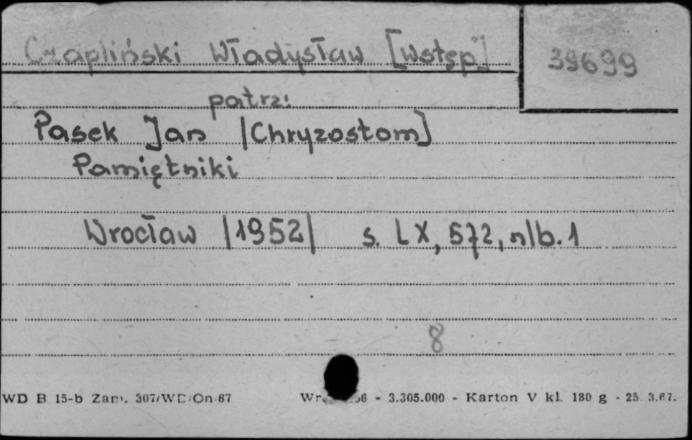 Czapliński Władysław [Wstęp]
39699
patrz:
Pasek Jan |Chryzostom]
Pamiętniki
Wrocław |1952| s. LX, 572, nlb. 1
8
WD B 15-b Zam. 307/WD/On/67 - 3.305.000 - Karton V kl. 180 g - 25.3.67.